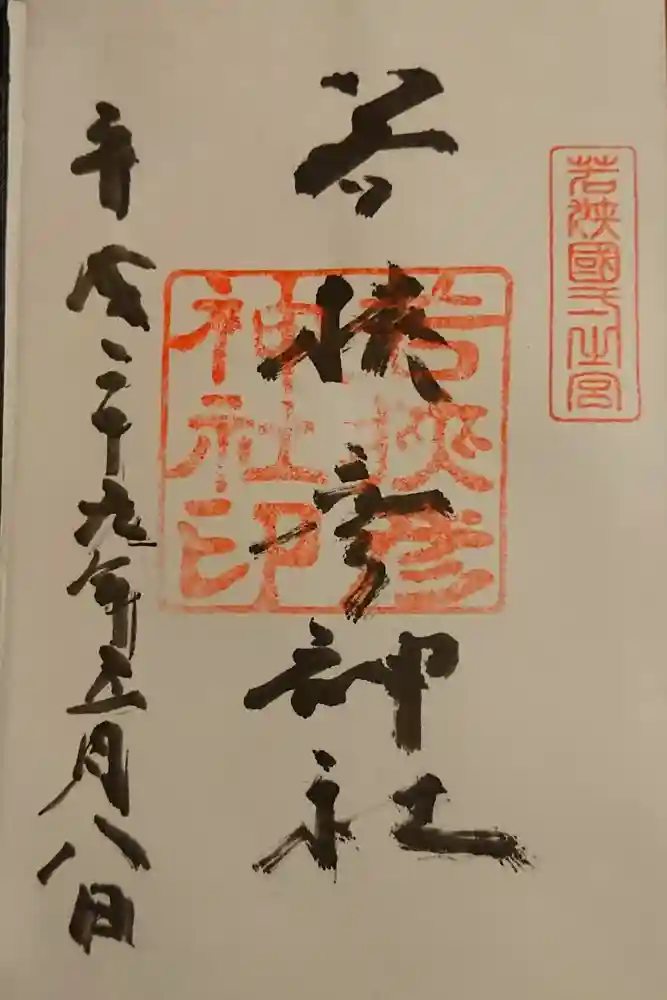 若狹國一之宮
若狭彦神社
若狭彦
神社印
平成二十九年五月八日